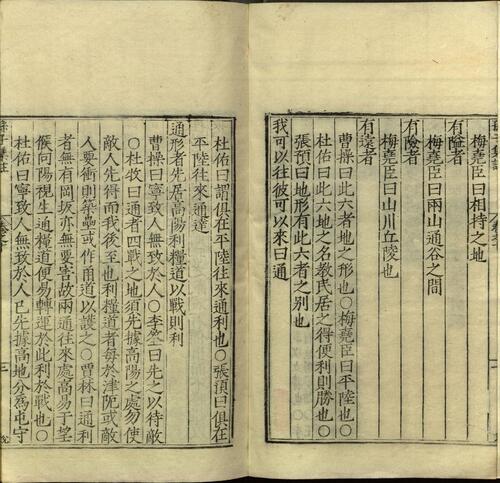 梅堯臣曰相持之地
有隘者
梅堯臣曰兩山通谷之間
有險者
梅堯臣曰山川丘陵也
有遠者
曹操曰此六者地之形也○梅堯臣曰平陸也○
杜佑曰此六地之名教民居之得便利則勝也○
張預曰地形有此六者之別也
我可以往彼可以來曰通
杜佑曰謂俱在平陸往來通利也○張預曰俱在
平陸往來通達
通形者先居高陽利糧道以戰則利
曹操曰寧致人無致於人○李筌曰先之以待敵
○杜牧曰通者四戰之地須先據高陽之處勿使
敵人先得而我後至也利糧道者每於津阨或敵
人要衝則築壘或作甬道以護之○賈林曰通利
者無有岡坂亦無要害故兩通往來處高易于望
候向陽視生通糧道便易轉運於此利於戰也○
杜佑曰寧致人無致於人已先據高地分為屯守